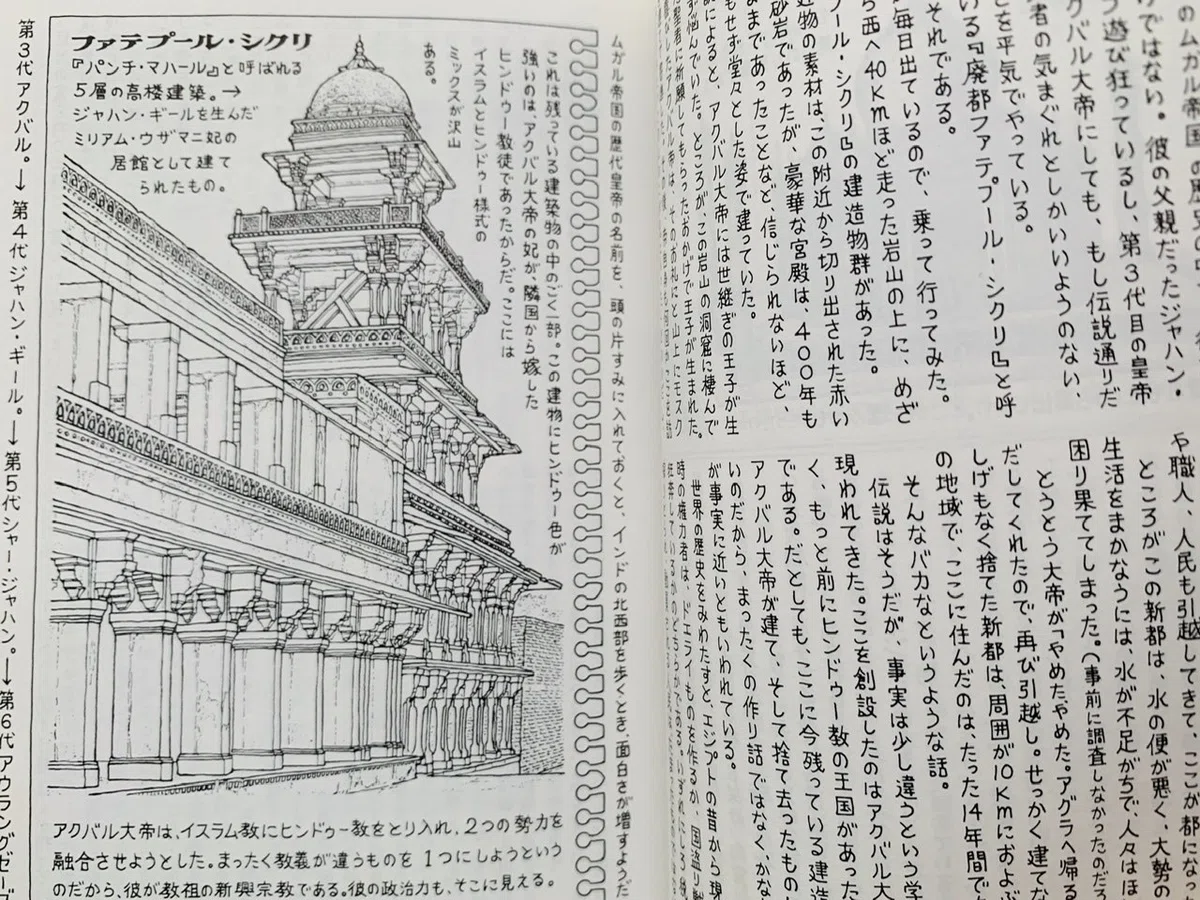 けではない。彼の父親だったジャハン・
う遊び狂っているし、第3代目の皇帝
クバル大帝にしても、もし伝説通りだ
者の気まぐれとしかいいようのない、
とを平気でやっている。
いる『廃都ファテプール・シクリ』と呼
それである。
毎日出ているので、乗って行ってみた。
ら西へ40Kmほど走った岩山の上に、めざ
プール・シクリ』の建造物群があった。
建物の素材は、この附近から切り出された赤い
砂岩であったが、豪華な宮殿は、400年も
ままであったことなど、信じられないほど、
もせず堂々とした姿で建っていた。
説によると、アクバル大帝には世継ぎの王子が生
ず悩んでいた。ところが、この岩山の洞窟に棲んで
た聖者に祈願してもらったおかげで王子が生まれた。
したアクバル帝は、そのお礼にと山上にモスク
や職人、人民も引越してきて、ここが都になっ
ところがこの新都は、水の便が悪く、大勢の
生活をまかなうには、水が不足がちで、人々はほ
困り果ててしまった。(事前に調査しなかったのだろ
とうとう大帝が「やめたやめた。アグラへ帰る
だしてくれたので、再び引越し。せっかく建てな
しげもなく捨てた新都は、周囲が10Kmにおよぶ
の地域で、ここに住んだのは、たった14年間で
そんなバカなというような話。
伝説はそうだが、事実は少し違うという学
現われてきた。ここを創設したのはアクバル大
く、もっと前にヒンドゥー教の王国があった
である。だとしても、ここに今残っている建造
アクバル大帝が建て、そして捨て去ったもの
いのだから、まったくの作り話ではなく、かな
が事実に近いともいわれている。
世界の歴史をみわたすと、エジプトの昔から現
時の権力者は、ドエライものを作るか、国盗り戦
ムガル帝国の歴代皇帝の名前を、頭の片すみに入れておくと、インドの北西部を歩くとき、面白さが増すようだ
ファテプール・シクリ
『パンチ・マハール』と呼ばれる
5層の高楼建築。→
ジャハン・ギールを生んだ
ミリアム・ウザマニ妃の
居館として建て
られたもの。
これは残っている建築物の中のごく一部。この建物にヒンドゥー色が
強いのは、アクバル大帝の妃が、隣国から嫁した
ヒンドゥー教徒であったからだ。ここには
イスラムとヒンドゥー様式の
ミックスが沢山
ある。
アクバル大帝は、イスラム教にヒンドゥー教をとり入れ、2つの勢力を
融合させようとした。まったく教義が違うものを1つにしようという
のだから、彼が教祖の新興宗教である。彼の政治力も、そこに見える。
第3代アクバル。→第4代ジャハン・ギール。→第5代シャー・ジャハン。→第6代アウラングゼーブ